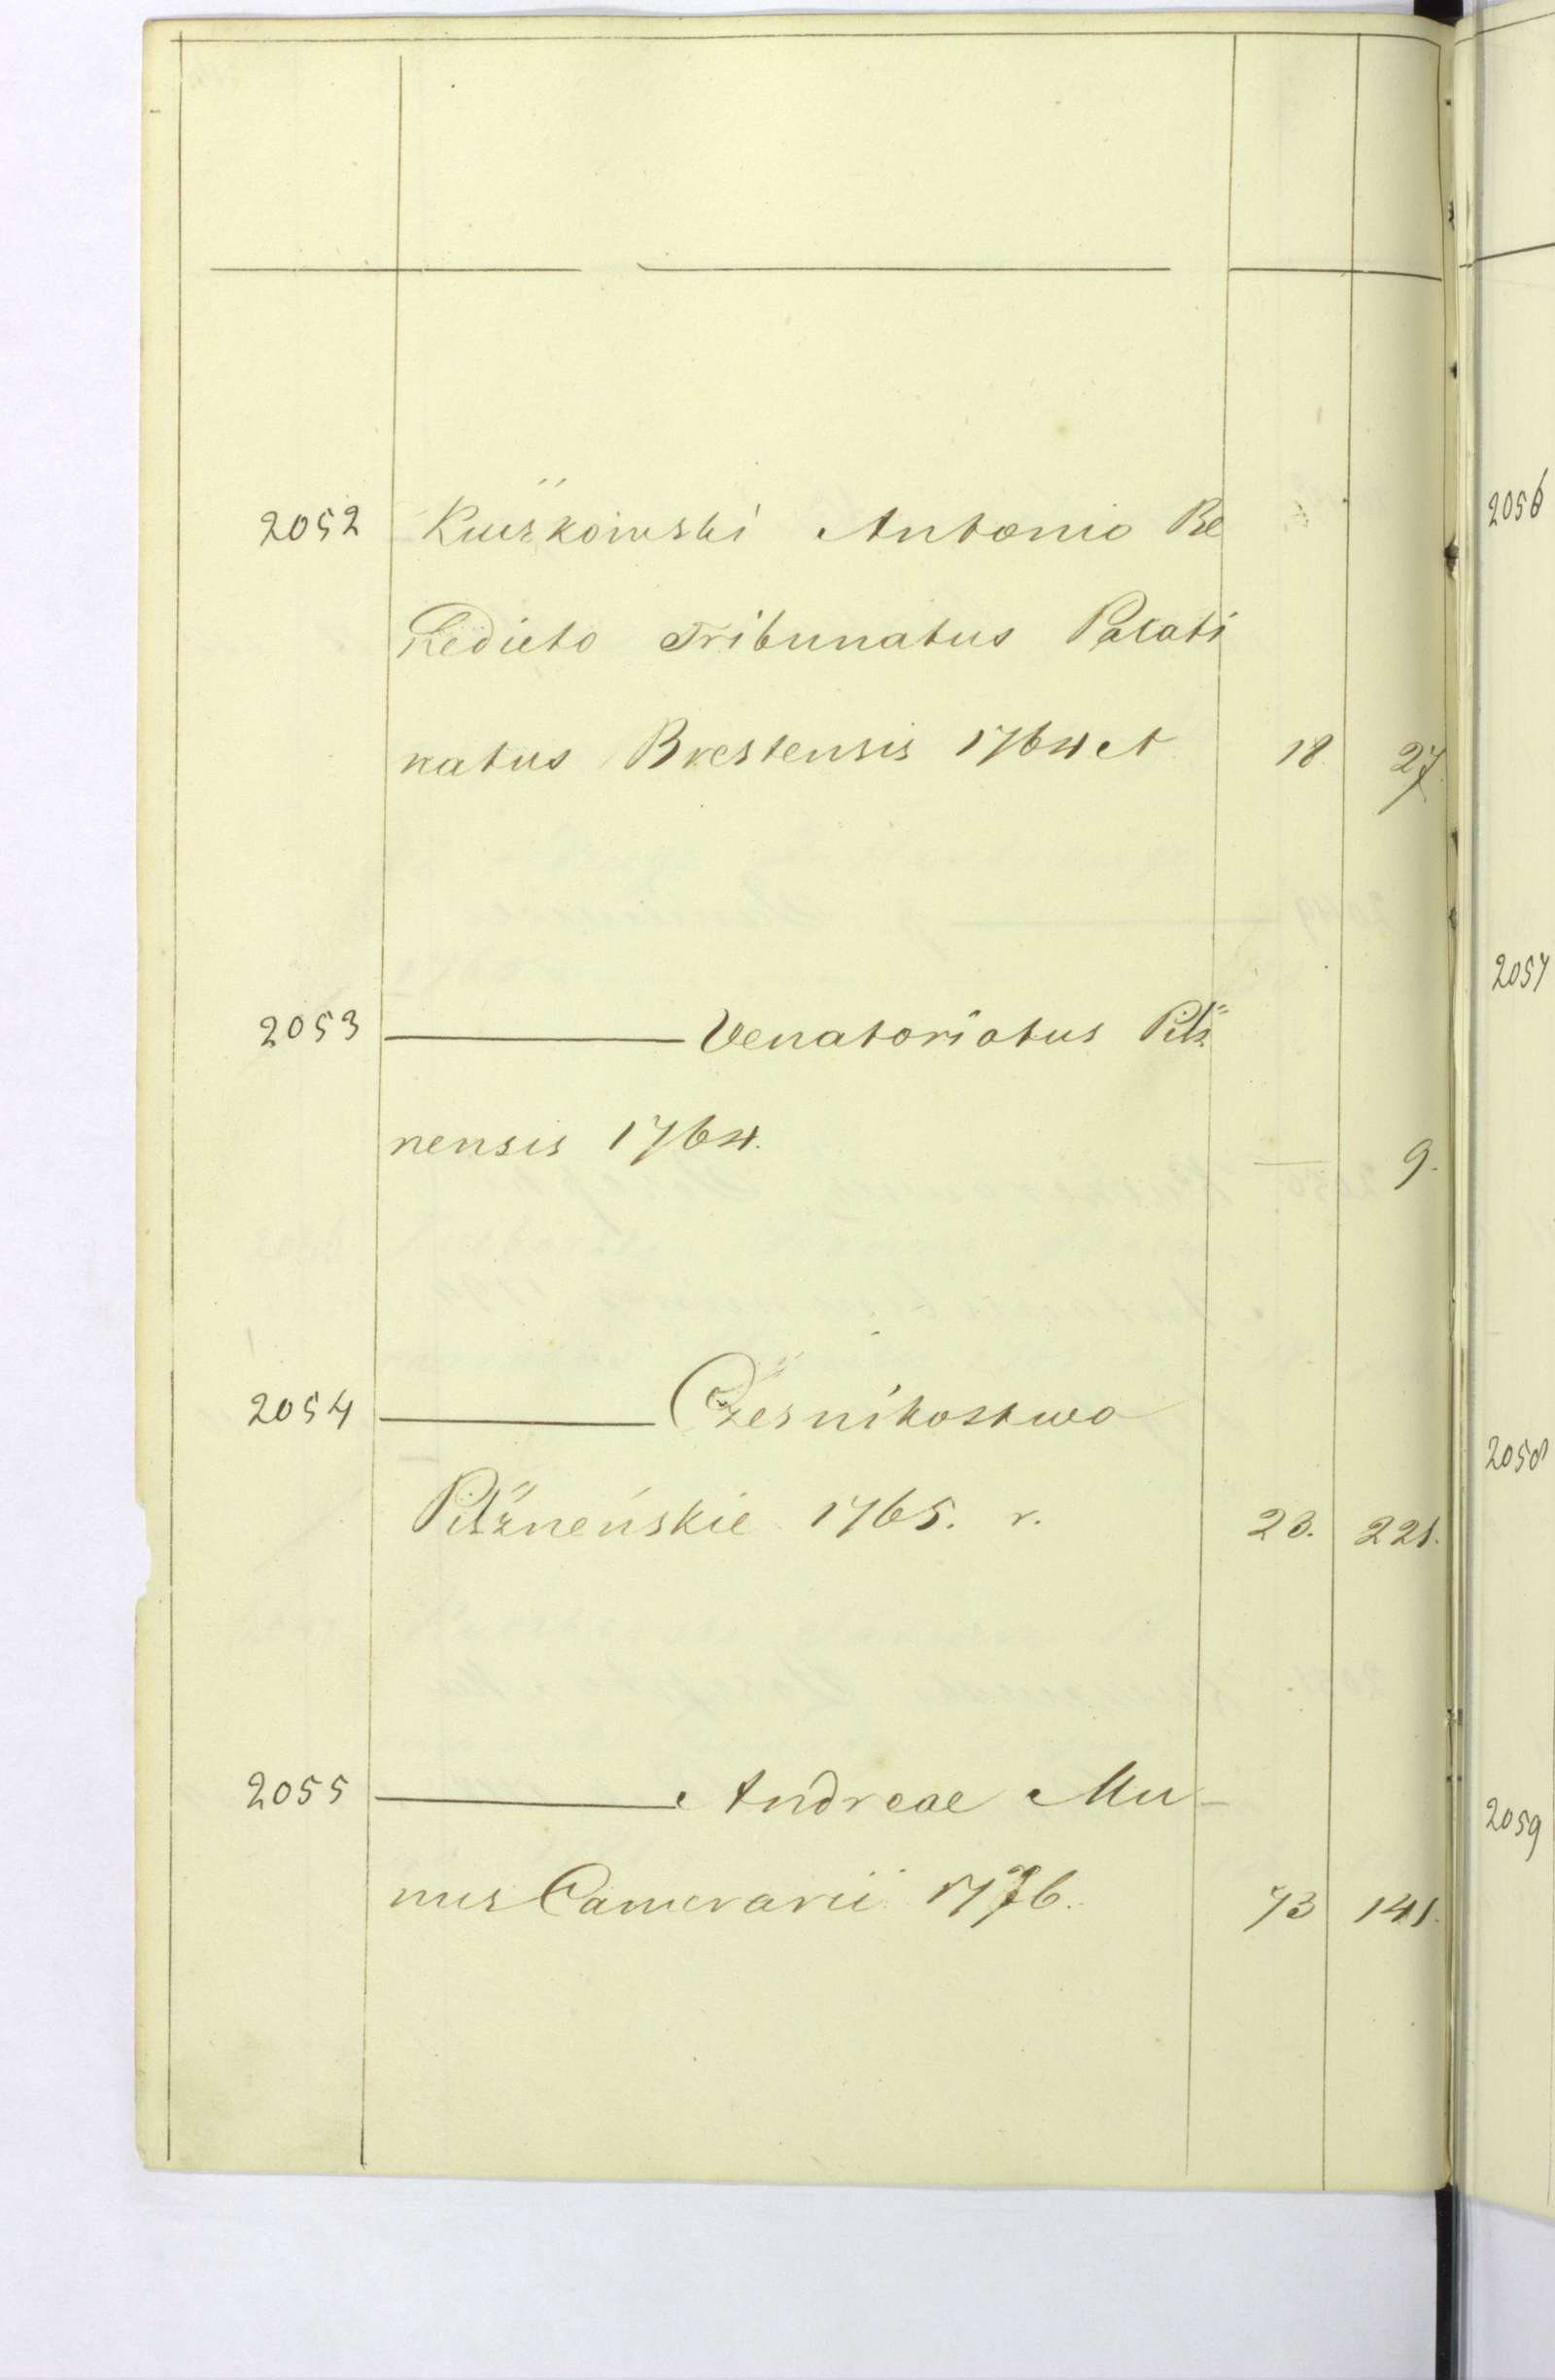 2052 Kuczkowski Antonio Be
nedicto Tribunatus Palati
natus Brestensis 1764 et 18 27.
2053 ——— Venatoriatus Pilz
nensis 1764. — 9.
2054 ——— Czesnikostwo
Pilzneńskie 1765. r. 23. 221.
2055 ——— Andreae Mu-
nus Camerarii 1776. 73 141.
2056
2057
2058
2059